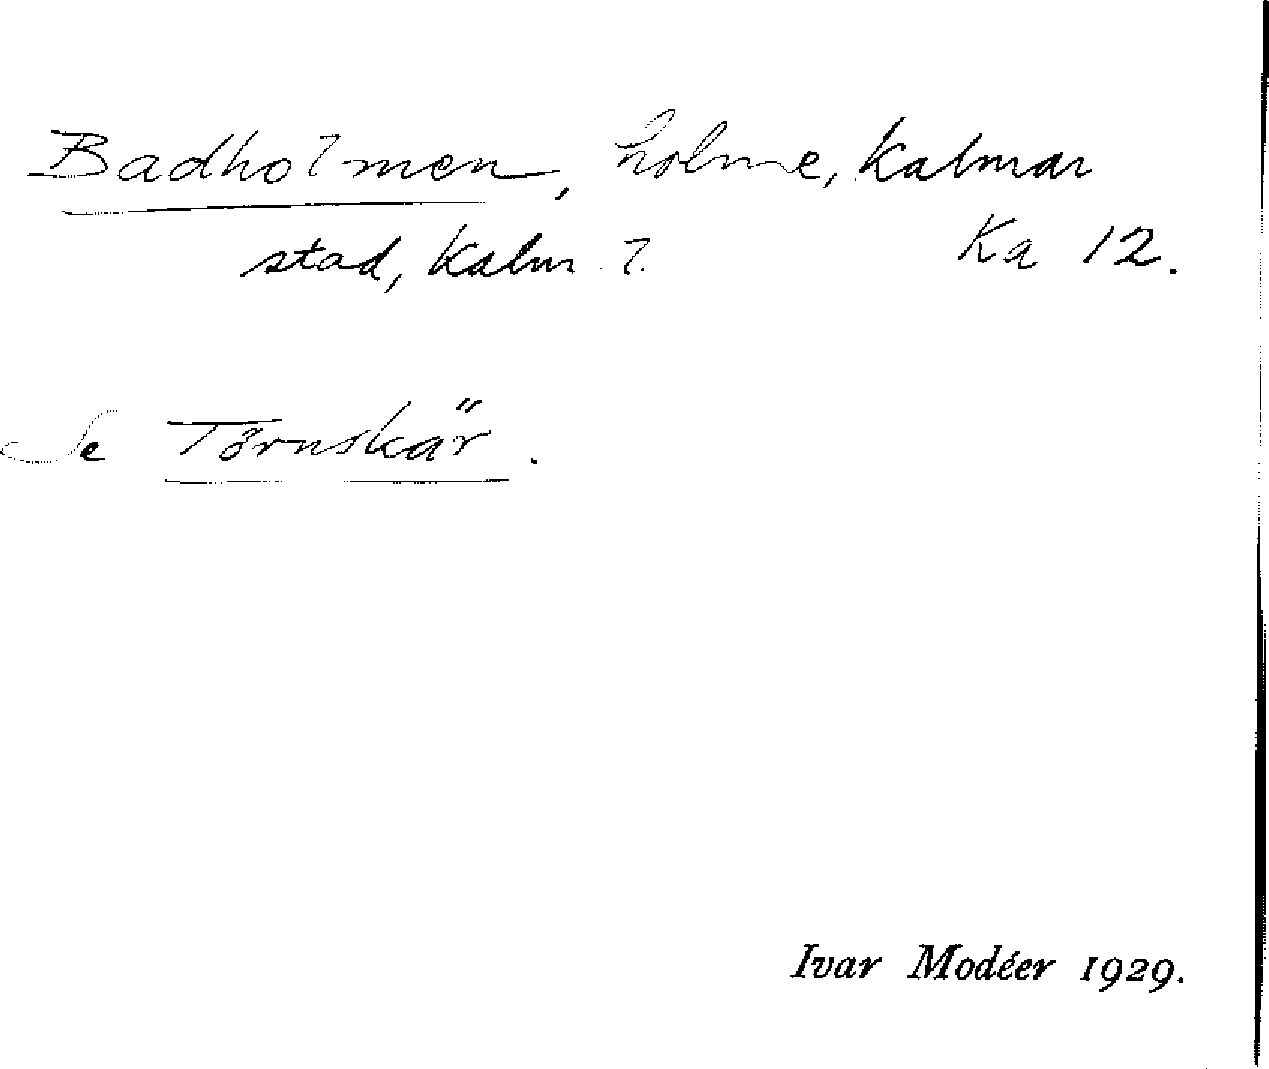 Badholmen, holme, Kalmar
stad, Kalm. l. Ka 12.
Se Törnskär.
Ivar Modéer 1929.